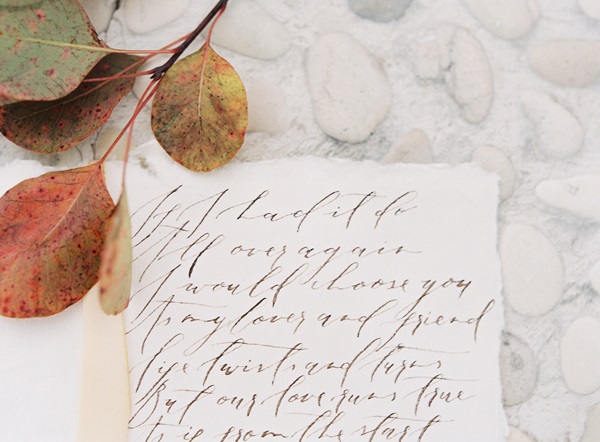 If I had it do
All over again
I would choose you
As my lover and friend
Life twists and turns
But our love runs true
is from the start